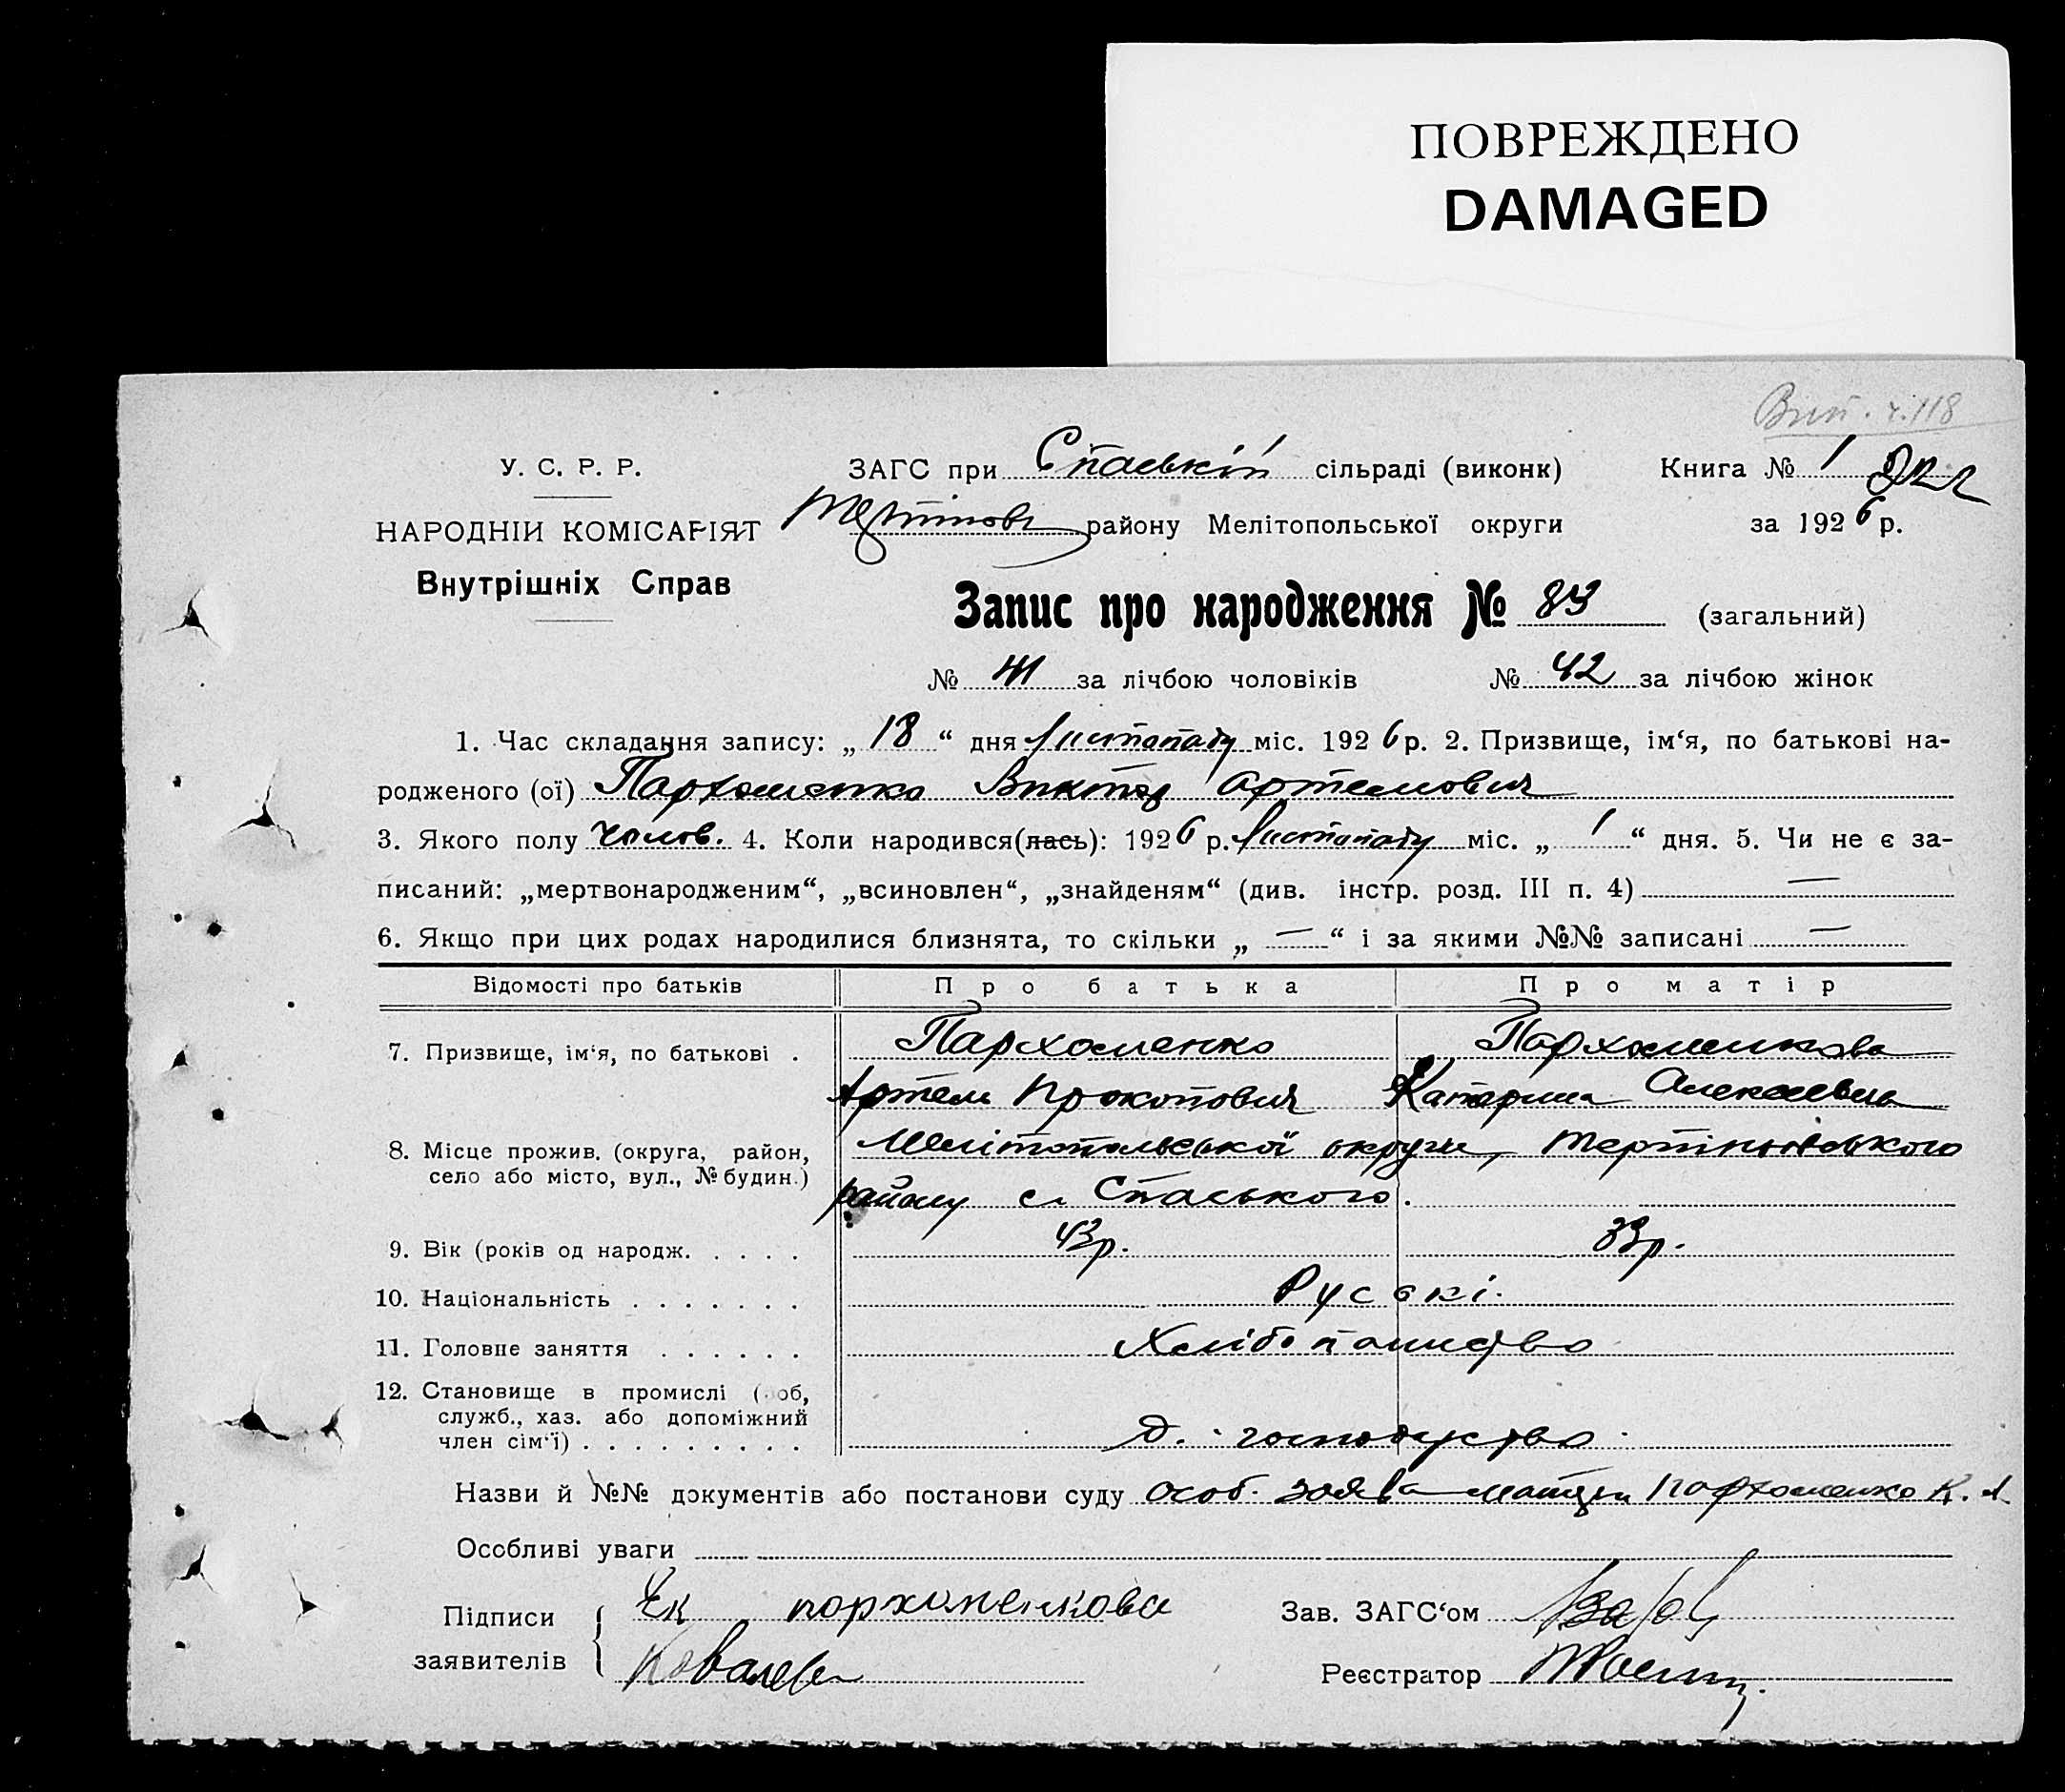 ПОВРЕЖДЕНО
DAMAGED
Вип. ч. 118
У. С. Р. Р.
НАРОДНІЙ КОМІСАРІЯТ
Внутрішніх Справ
ЗАГС при Спаській сільраді (виконк)
району Мелітопольської округи
Книга № 1
за 1926 р.
Запис про народження № 83 (загальний)
№ 41 за лічбою чоловіків № 42 за лічбою жінок
1. Час складання запису: „ 18 “ дня Листопаду міс. 1926 р. 2. Призвище, ім‘я, по батькові на-
родженого (ої) Пархоменко Виктор Артемович
3. Якого полу чолов. 4. Коли народився(лась): 1926 р. Листопаду міс. „ 1 “ дня. 5. Чи не є за-
писаний: „мертвонародженим“, „всиновлен“, „знайденям“ (див. інстр. розд. III п. 4) —
6. Якщо при цих родах народилися близнята, то скільки „ — “ і за якими №№ записані —
Відомості про батьків Про батька Про матір
7. Призвище, ім‘я, по батькові . Пархоменко Пархоменкова
Артем Прокопович Катерина Алексеевна
8. Місце прожив. (округа, район, село або місто, вул., № будин.) Мелітопольської округи, Терпіньівського
району с. Спаського.
9. Вік (років од народж. . . . . 43 р. 33 р.
10. Національність . . . . . . . Руські.
11. Головне заняття . . . . . . Хлібопашество
12. Становище в промислі ( об,
служб., хаз. або допоміжний
член сім‘ї) . . . . . . . . . Д. господуство
Назви й №№ документів або постанови суду особ. заява матери Пархоменко К. А.
Особливі уваги
Підписи заявителів
Ек пархоменкова
Ковалев
Зав. ЗАГС‘ом
Реєстратор